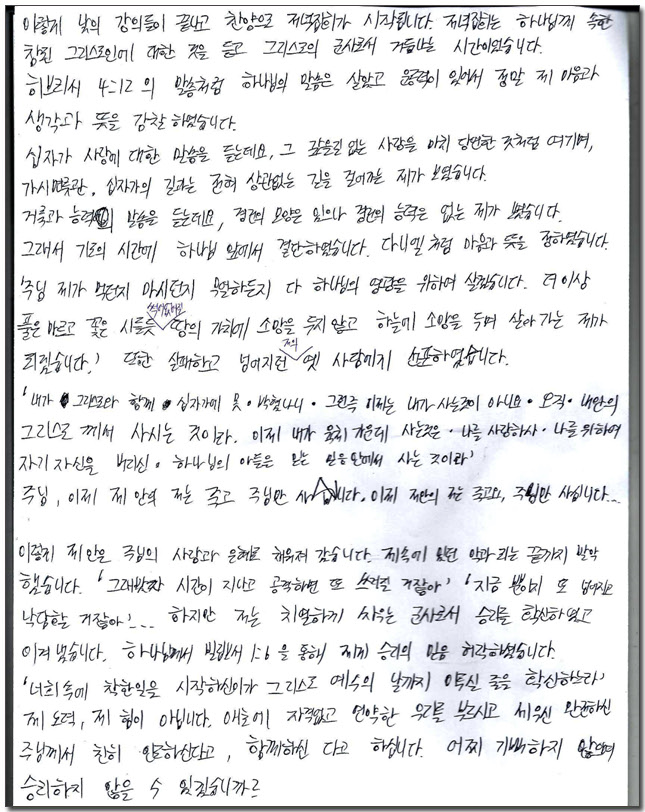 이렇게 낮의 강의들이 끝나고 찬양으로 저녁집회가 시작됩니다. 저녁집회는 하나님께 속한
참된 그리스도인에 대한 것을 듣고 그리스도의 군사로서 거듭나는 시간이었습니다.
히브리서 4:12의 말씀처럼 하나님의 말씀은 살았고 운동력이 있어서 정말 제 마음과
생각과 뜻을 감찰하였습니다.
십자가 사랑에 대한 말씀을 듣는데요, 그 값을길 없는 사랑을 마치 당연한 것처럼 여기며,
가시면류관, 십자가의 길과는 전혀 상관없는 길을 걸어가는 제가 보였습니다.
거룩과 능력의 말씀을 듣는데요, 경건의 모양은 있으나 경건의 능력은 없는 제가 보였습니다.
그래서 기도의 시간에 하나님 앞에서 결단하였습니다. 다니엘처럼 마음과 뜻을 정하였습니다.
'주님 제가 먹던지 마시던지 무얼하든지 다 하나님의 영광을 위하여 살겠습니다. 더이상
풀은 마르고 꽃은 시들듯 썩어없어질 땅의 가치에 소망을 두지 않고 하늘에 소망을 두며 살아가는 제가
되겠습니다.' 또한 실패하고 넘어지던 저의 옛 사람에게 선포하였습니다.
'내가 그리스도와 함께 십자가에 못·박혔나니·그런즉 이제는 내가 사는것이 아니요·오직·내안의
그리스도께서 사시는 것이라. 이제 내가 육체 가운데 사는것은·나를 사랑하사·나를 위하여
자기 자신을 버리신·하나님의 아들을 믿는 믿음안에서 사는 것이라'
주님, 이제 제 안의 저는 죽고 주님만 사십니다. 이제 제안의 저는 죽고요, 주님만 사십니다...
이렇게 제 안은 주님의 사랑과 은혜로 채워져 갔습니다. 제속에 있던 악과 죄는 끝까지 발악
했습니다. '그래봤자 시간이 지나고 공격하면 또 쓰러질 거잖아' '지금 뿐이지 또 넘어지고
낙담할 거잖아'... 하지만 저는 치열하게 싸우는 군사로서 승리를 확신하였고
이겨 냈습니다. 하나님께서 빌립보서 1:6을 통해 제게 승리의 믿음 허락하셨습니다.
'너희 속에 착한일을 시작하신이가 그리스도 예수의 날까지 이루실 줄을 확신하노라'
제 노력, 제 힘이 아닙니다. 애초에 자격없고 연약한 우리를 부르시고 세우신 완전하신
주님께서 친히 인도하신다고, 함께하신 다고 하십니다. 어찌 기뻐하지 않으며
승리하지 않을 수 있겠습니까?